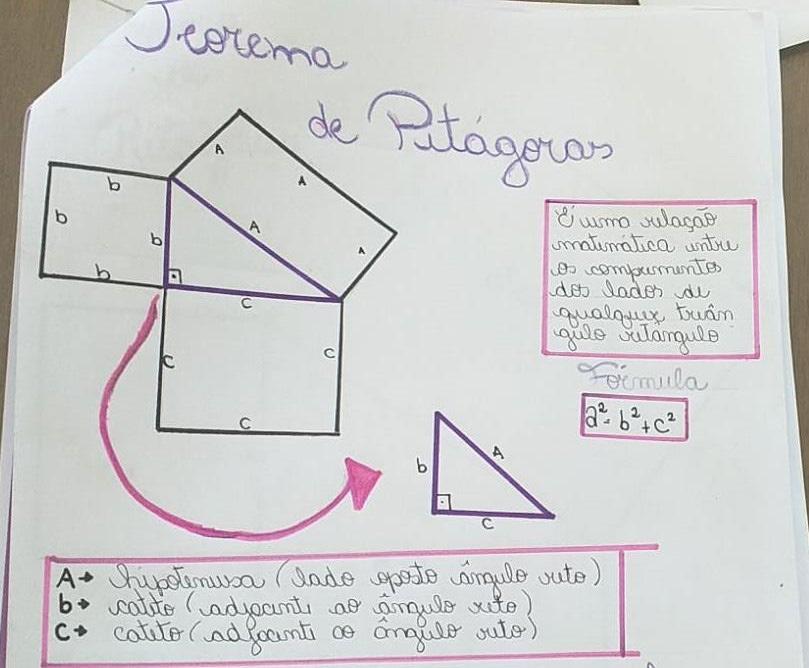 Teorema
de Pitágoras
A
A
b
b
b
A
A
b
c
c
c
c
É uma relação
matemática entre
os comprimentos
dos lados de
qualquer triân
gulo retângulo
Fórmula
a²= b²+c²
b
A
c
A→ hipotenusa (lado oposto ângulo reto)
b→ cateto (adjacente ao ângulo reto)
C→ cateto (adjacente ao ângulo reto)